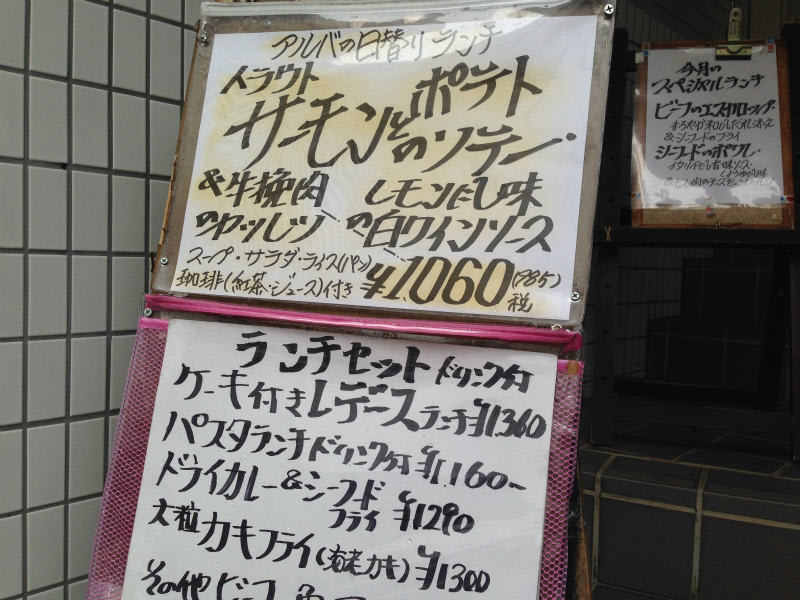 アルバの日替りランチ
トラウト
サーモンとポテト
のソテー
&牛挽肉
のカツレツ
レモンにし味
の白ワインソース
スープ・サラダ・ライス(パン)
珈琲(紅茶・ジュース)付き ¥1060(785)
税
ランチセット ドリンク付
ケーキ付きレデースランチ¥1360
パスタランチドリンク付 ¥1,160-
ドライカレー&シーフード
フライ ¥1290
大粒カキフライ( カキ)¥1300
その他 ビーフ
今月の
スペシャルランチ
ビーフのエスカロップ・
&シーフードのフライ
シーフードのポワレ・